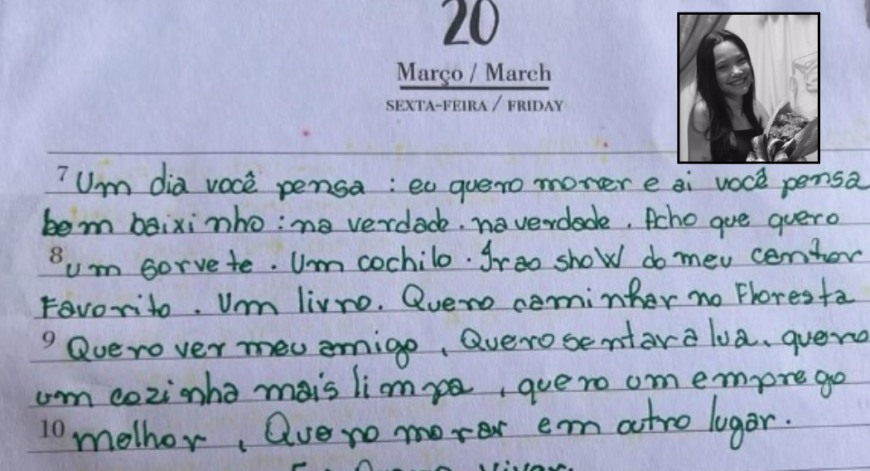 20
Março / March
SEXTA-FEIRA / FRIDAY
7 Um dia você pensa : eu quero morrer e ai você pensa
bem baixinho : na verdade . na verdade . Acho que quero
8 um sorvete . Um cochilo . Ir ao show do meu cantor
Favorito . Um livro . Quero caminhar na Floresta
9 Quero ver meu amigo , Quero sentar a lua , quero
um cozinha mais limpa , quero um emprego
10 melhor , Quero morar em outro lugar .
Quero viver.